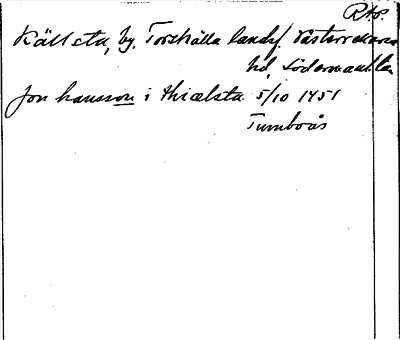 RAp.
Källsta, by, Torshälla landsf. Västerrekarne
hd, Södermanl. län
Jon hansson i thiælsta 5/10 1451
Tumboås